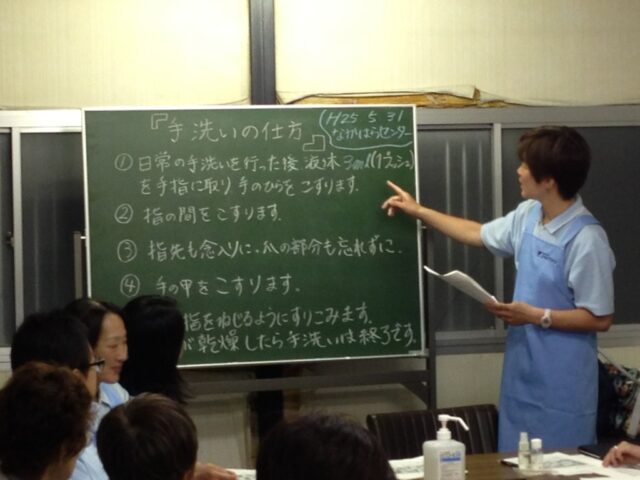 『手洗いの仕方』
H25 5 31
なかはらセンター
① 日常の手洗いを行った後、液体3ml(1プッシュ)
を手指に取り手のひらをこすります。
② 指の間をこすります。
③ 指先も念入りに、爪の部分も忘れずに。
④ 手の甲をこすります。
指をねじるようにすりこみます。
が乾燥したら手洗いは終了です。